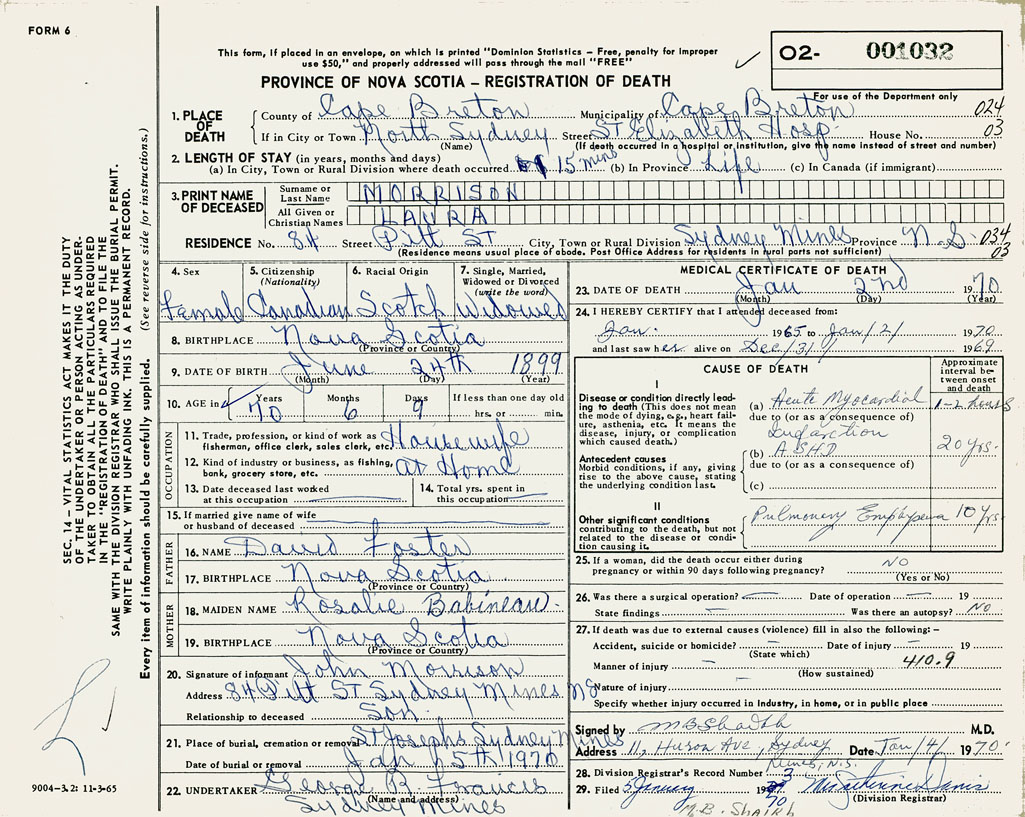 FORM 6
This form, if placed in an envelope, on which is printed "Dominion Statistics – Free, penalty for improper
use $50," and properly addressed will pass through the mail "FREE"
PROVINCE OF NOVA SCOTIA – REGISTRATION OF DEATH
02- 001032
For use of the Department only
1. PLACE OF DEATH
County of Cape Breton Municipality of Cape Breton 024
If in City or Town North Sydney Street St Elizabeth Hosp. House No. 03
(Name) (If death occurred in a hospital or institution, give the name instead of street and number)
2. LENGTH OF STAY (in years, months and days)
(a) In City, Town or Rural Division where death occurred 15 mins (b) In Province Life (c) In Canada (if immigrant)
3. PRINT NAME OF DECEASED
Surname or Last Name MORRISON
All Given or Christian Names LAURA
RESIDENCE No. 84 Street Pitt ST City, Town or Rural Division Sydney Mines Province N.S. 034
(Residence means usual place of abode. Post Office Address for residents in rural parts not sufficient) 03
4. Sex 5. Citizenship (Nationality) 6. Racial Origin 7. Single, Married, Widowed or Divorced (write the word)
Female Canadian Scotch Widowed
8. BIRTHPLACE Nova Scotia
(Province or Country)
9. DATE OF BIRTH June 24th 1899
(Month) (Day) (Year)
10. AGE in Years Months Days If less than one day old
70 6 9 hrs. or min.
OCCUPATION
11. Trade, profession, or kind of work as fisherman, office clerk, sales clerk, etc. Housewife
12. Kind of industry or business, as fishing, bank, grocery store, etc. at Home
13. Date deceased last worked at this occupation
14. Total yrs. spent in this occupation
15. If married give name of wife or husband of deceased
FATHER
16. NAME David Foster
17. BIRTHPLACE Nova Scotia
(Province or Country)
MOTHER
18. MAIDEN NAME Rosalie Babineau.
19. BIRTHPLACE Nova Scotia
(Province or Country)
20. Signature of informant John Morrison
Address 84 Pitt ST Sydney Mines NS
Relationship to deceased Son
21. Place of burial, cremation or removal St Josephs Sydney Mines
Date of burial or removal Jan 5th 1970
22. UNDERTAKER George R Francis
(Name and address)
Sydney Mines
MEDICAL CERTIFICATE OF DEATH
23. DATE OF DEATH Jan 2nd 1970
(Month) (Day) (Year)
24. I HEREBY CERTIFY that I attended deceased from:
Jan. 1965 to Jan/2/ 1970
and last saw her alive on Dec/31/ 1969
CAUSE OF DEATH
Approximate interval between onset and death
I
Disease or condition directly leading to death (This does not
mean the mode of dying, e.g., heart failure, asthenia, etc. It means the
disease, injury, or complication
which caused death.)
(a) Acute Myocardial 1-2 hours
due to (or as a consequence of)
Infarction
Antecedent causes
Morbid conditions, if any, giving
rise to the above cause, stating
the underlying condition last.
(b) A.S.H.D 20 yrs.
due to (or as a consequence of)
(c)
II
Other significant conditions
contributing to the death, but not
related to the disease or condition
causing it.
Pulmonary Emphysema 10 yrs.
25. If a woman, did the death occur either during
pregnancy or within 90 days following pregnancy? NO
(Yes or No)
26. Was there a surgical operation? Date of operation 19
State findings Was there an autopsy? NO
27. If death was due to external causes (violence) fill in also the following: –
Accident, suicide or homicide? Date of injury 19
(State which)
Manner of injury 410.9
(How sustained)
Nature of injury
Specify whether injury occurred in industry, in home, or in public place
Signed by M B Shaikh M.D.
Address 11, Huron Ave, Sydney Date Jan/4/ 1970
Mines, N.S.
28. Division Registrar's Record Number 3
29. Filed 5 January 19 70
(Division Registrar)
M.B. SHAIKH
SEC. 14 – VITAL STATISTICS ACT MAKES IT THE DUTY
OF THE UNDERTAKER OR PERSON ACTING AS UNDERTAKER
TO OBTAIN ALL THE PARTICULARS REQUIRED
IN THE "REGISTRATION OF DEATH" AND TO FILE THE
SAME WITH THE DIVISION REGISTRAR WHO SHALL ISSUE THE BURIAL PERMIT.
WRITE PLAINLY WITH UNFADING INK. THIS IS A PERMANENT RECORD.
Every item of information should be carefully supplied. (See reverse side for instructions.)
9004–3.2: 11-3-65